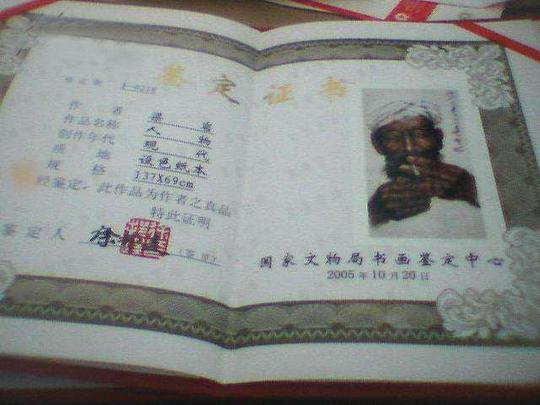 鉴定证书
作者 梁
作品名称 人物
创作年代 现代
质地 设色纸本
规格 137X69cm
经鉴定，此作品为作者之真品
特此证明
鉴定人 徐
国家文物局书画鉴定中心
2005年10月20日